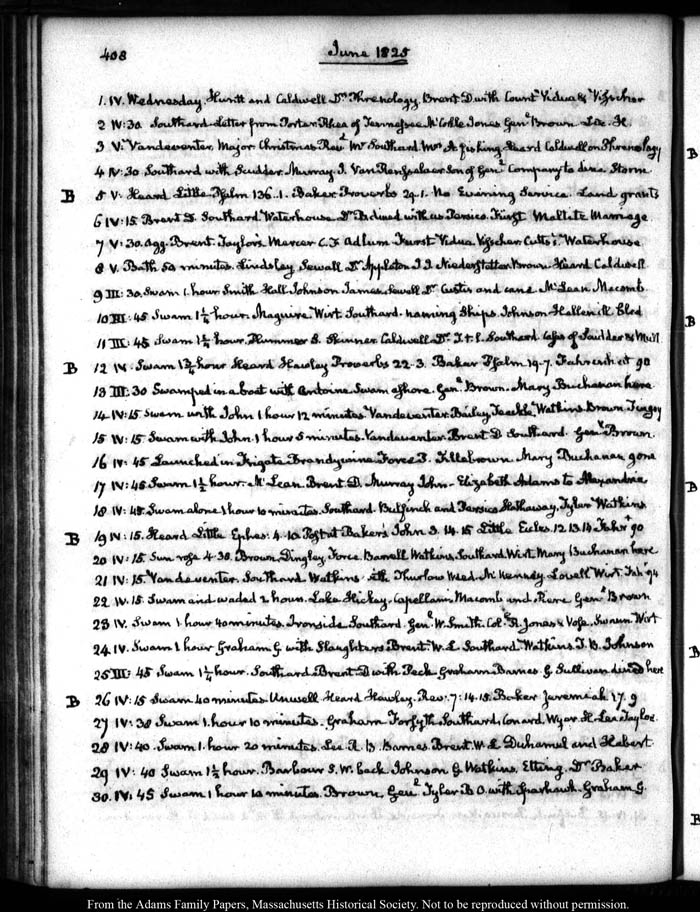 408
June 1825
1. IV. Wednesday. Hewitt and Caldwell Dr. Phrenology. Brent D with Count Vidua & Visscher
2 IV:30 Southard. Letter from Porter Rhea of Tennessee McCorkle Jones Genl Brown. Lee. H
3 V. Vandeventer Major Christmas Revd Mr Southard Mrs A fishing. Heard Caldwell on Phrenology
4 IV:30 Southard with Scudder. Murray J. Van Rensselaer son of Genl Company to dine Storm
B 5 V. Heard Little Psalm 136.1. Baker Proverbs 29.1. No Evening Service. Land grants
6 IV:15 Brent D. Southard Waterhouse. Dr. P. dined with us Persico. First Maltite Marriage
7 V:30. Brent. Taylor's Mercer C.F. Adlum Furst Vidua Visscher Cutts's Waterhouse
8 V. Bath 50 minutes. Lindsley Sewall Dr Appleton J. J. Niederstetter Brown. Heard Caldwell
9 III:30. Swam 1. hour Smith Hall Johnson James. Sewell Dr. Custis and cane McLean Macomb
10 III:45 Swam 1¼ hour. Maguire Wirt Southard. naming Ships Johnson
11 III:45 Swam 1½ hour. Plummer S. Skinner Caldwell Dr. Southard. Loss of Scudder &
B 12 IV. Swam 1¾ hour Heard Hawley Proverbs 22.3. Baker Psalm 19.7. Fahrenheit at 90
13 III:30 Swamped in a boat with Antoine. Swam ashore. Genl Brown. Mary Buchanan here
14 IV:15 Swam with John 1 hour 12 minutes Vandeventer Bailey Teackle Watkins Brown Tingey
15 IV:15. Swam with John. 1 hour 5 minutes. Vandeventer. Brent D Southard. Genl Brown.
16 IV:45 Launched in Frigate Brandywine Force P. Fillebrown. Mary Buchanan gone
17 IV:45 Swam 1½ hour. McLean. Brent. D. Murray John. Elizabeth Adams to Alexandria
18 IV:45 Swam alone 1 hour 10 minutes. Southard. Bulfinch and Persico Hathaway. Tyler Watkins
B 19 IV:15. Heard Little Ephes: 4.10. Post at Baker's John 3.14.15 Little Eccles. 12.13.14 Fahrt 90
20 IV:15 Sun rose 4.38. Brown. Dingley. Force. Barrell Watkins. Southard. Wirt. Mary Buchanan here
21 IV:15. Vandeventer. Southard Watkins with Thurlow Weed McKenney. Lowell Wirt Fah. 94
22 IV.15 Swam and waded 2 hours. Lake Hickey. Capellano Macomb and Genl Brown
23 IV. Swam 1 hour 40 minutes. Ironside Southard. Genl W. Smith. Col. R Jones & Vose. Swann Wirt
24 IV. Swam 1 hour Graham G with Slaughters Brent. W. L Southard Watkins. T. B. Johnson
25 III:45 Swam 1¼ hour. Southard. Brent. D with Peck. Graham Barnes. G. Sullivan dined here
B 26 IV:15 Swam 40 minutes. Unwell Heard Hawley. Rev: 7:14.15 Baker Jeremiah 17.9
27 IV:38 Swam 1. hour 10 minutes. Graham Forsyth Southard. Conard. Wyer. H. Lee. Taylor.
28 IV:40. Swam 1. hour 20 minutes. Lee R. B. Barnes. Brent. W. L Duhamel and Hebert.
29 IV:40 Swam 1½ hour. Barbour S. W. back Johnson G Watkins. Etting. Dr Baker
30. IV:45 Swam 1 hour 10 minutes. Brown. Genl Tyler B. O. with Sparhawk. Graham G.
B
B
B
B
B
From the Adams Family Papers, Massachusetts Historical Society. Not to be reproduced without permission.